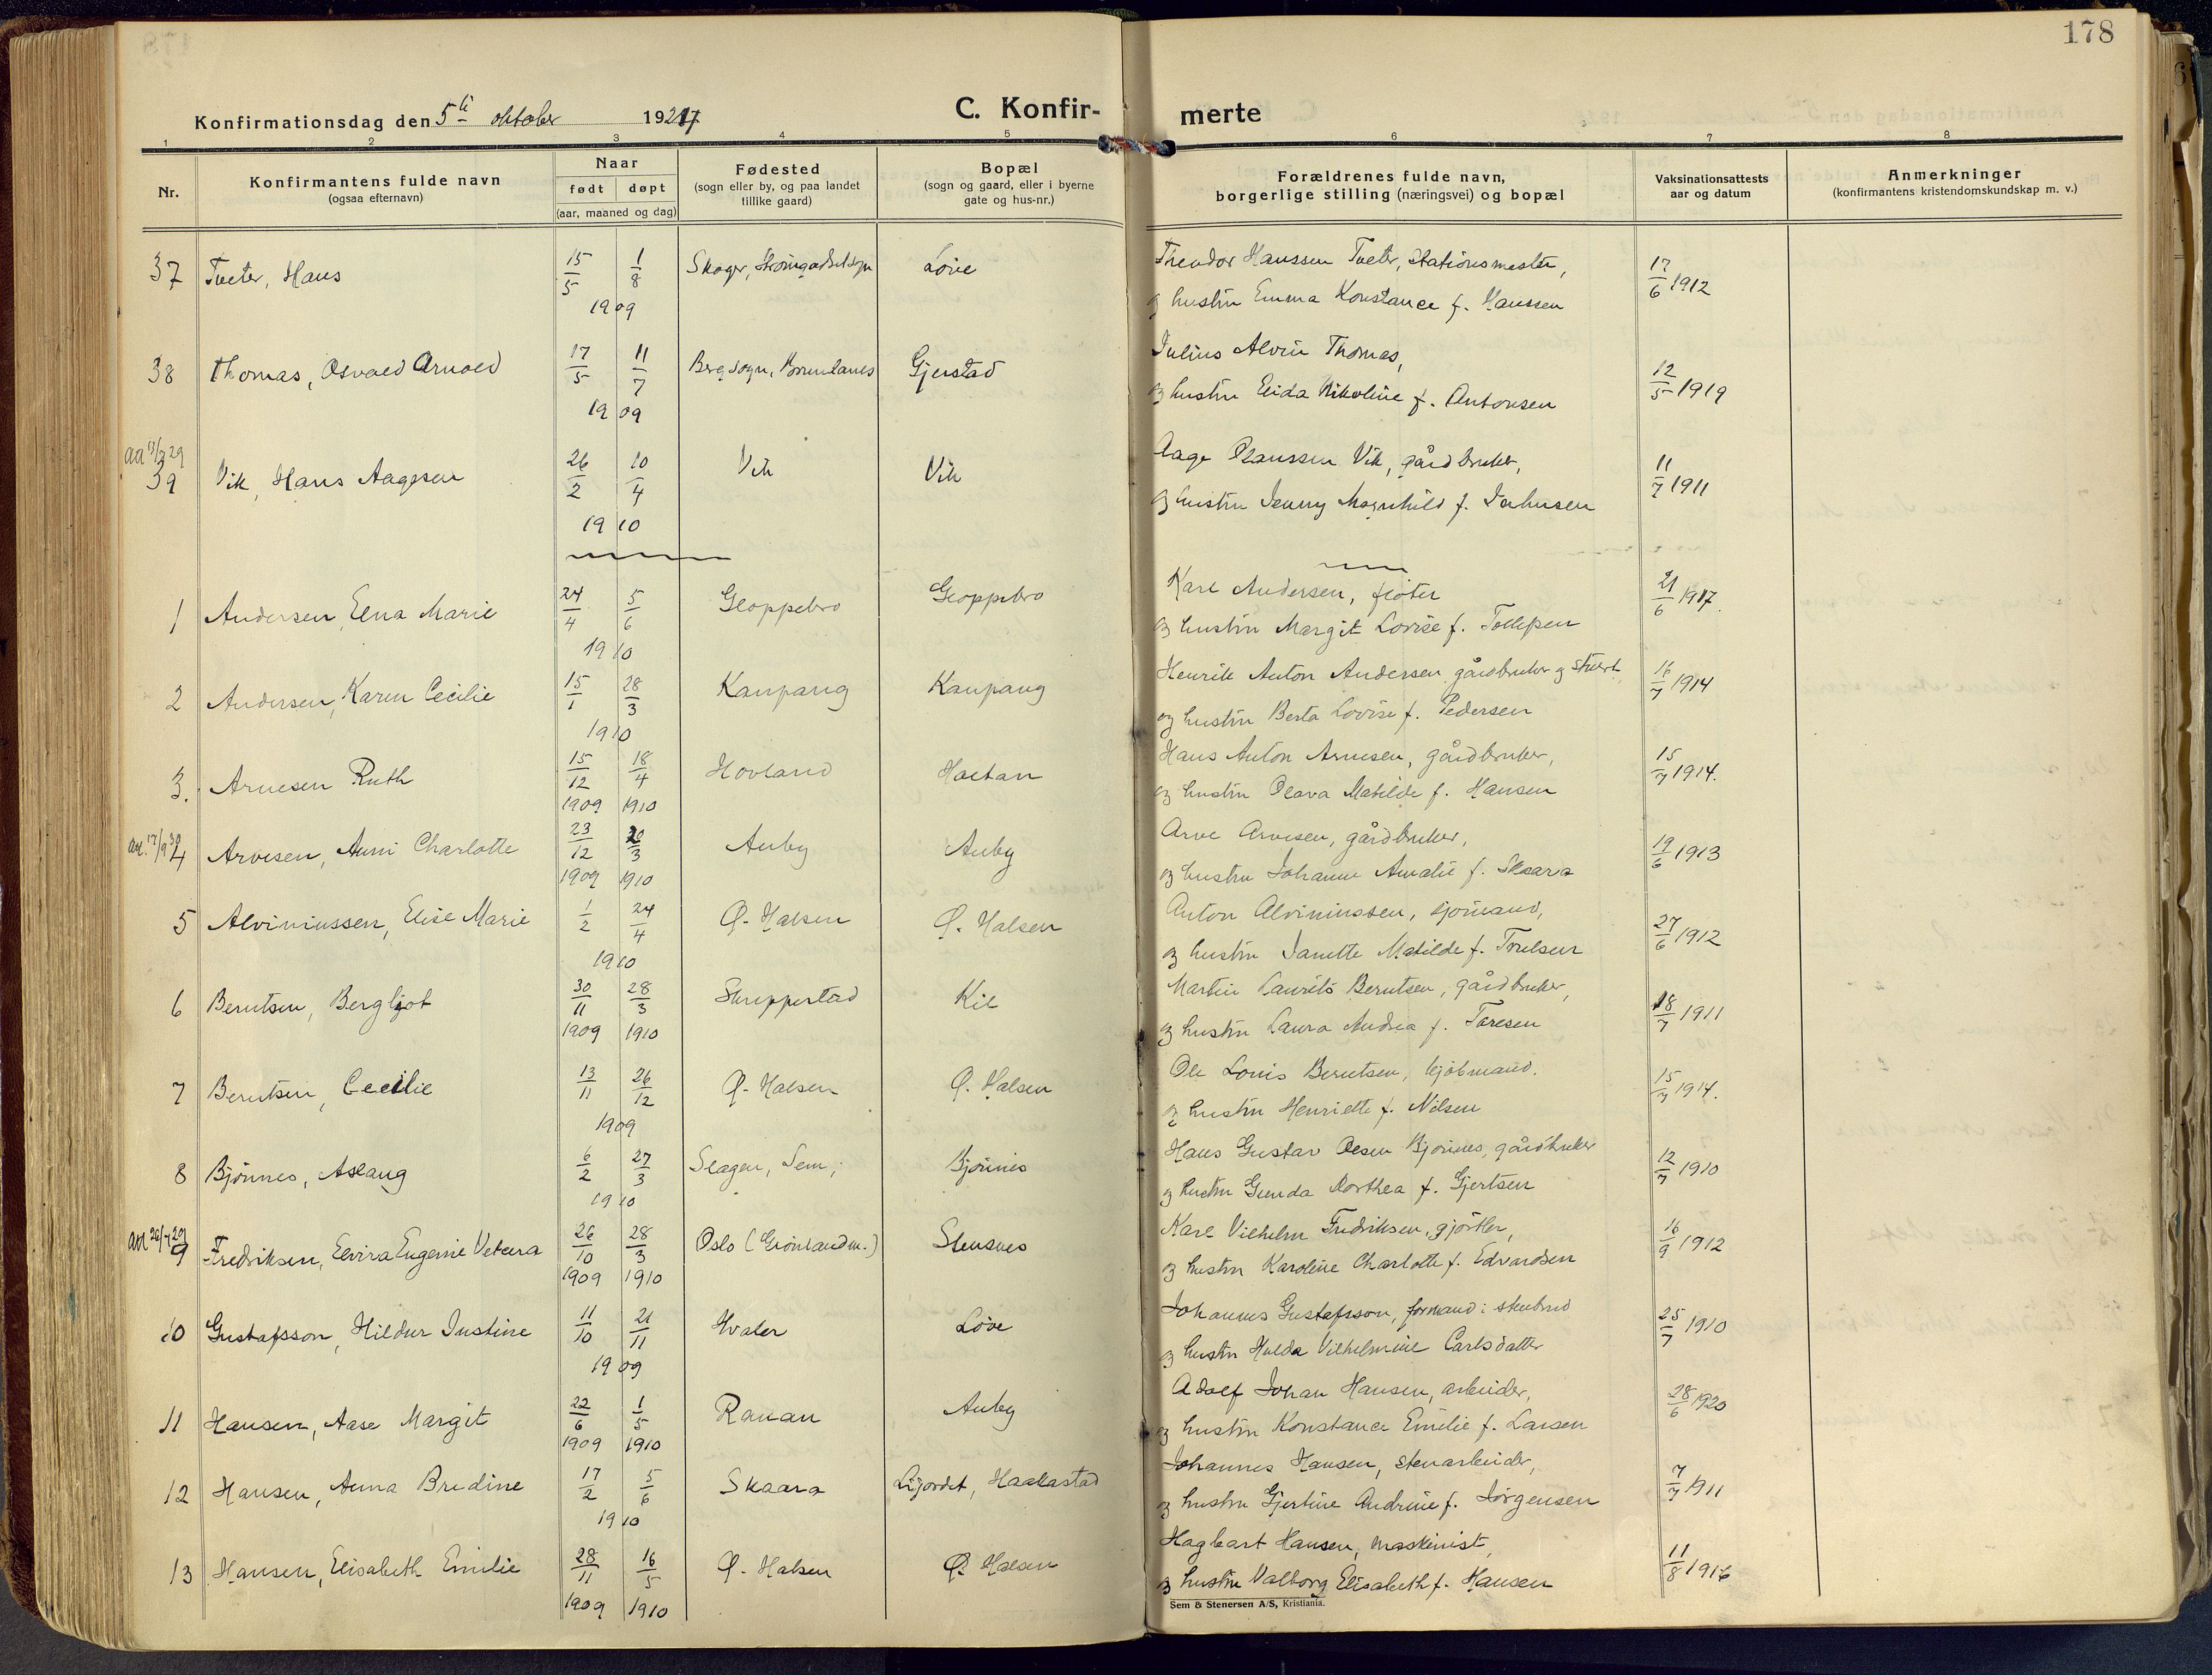 178
Konfirmationsdag den 5ti oktober 1924
C. Konfirmerte
1 2 3 4 5 6 7 8
Nr.
Konfirmantens fulde navn
(ogsaa efternavn)
Naar
født døpt
(aar, maaned og dag)
Fødested
(sogn eller by, og paa landet
tillike gaard)
Bopæl
(sogn og gaard, eller i byerne
gate og hus-nr.)
Forældrenes fulde navn,
borgerlige stilling (næringsvei) og bopæl
Vaksinationsattests
aar og datum
Anmerkninger
(konfirmantens kristendomskundskap m. v.)
37 Tveter, Hans 15/5 1/8 Skoger, Løve Theodor Hanssen Tveter, stationsmester, 17/6 1912
1909 og hustru Emma Konstance f. Hanssen
38 Thomas, Osvald Arnold 17/5 11/7 Berg sogn, Brunlanes Gjerstad Julius Alvin Thomas, 12/5 1919
1909 og hustru Elida Nikoline f. Antonsen
39 Vik, Hans Aagesen 26/2 10/4 Vik Vik Aage Olaussen Vik, gårdbruker, 11/7 1911
1910 og hustru Jenny Magnhild f. Jahnsen
1 Andersen, Elna Marie 24/4 5/6 Gloppebro Gloppebro Karl Andersen, fløter 21/6 1917.
1910 og hustru Margit Lovise f. Tollefsen
2 Andersen, Karen Cecilie 15/1 28/3 Kaupang Kaupang Henrik Anton Andersen, gårdbruker og stuert 16/7 1914
1910 og hustru Berta Lovise f. Pedersen
3. Arnesen Ruth 15/12 18/4 Hovland Haltan Hans Anton Arnesen, gårdbruker, 15/7 1914.
1909 1910 og hustru Olava Matilde f. Hansen
4 Arvesen, Anni Charlotte 23/12 20/3 Auby Auby Arve Arvesen, gårdbruker, 19/6 1913
1909 1910 og hustru Johanne Amalie f. Skaara
5 Alviniussen, Elise Marie 1/2 24/4 Ø. Halsen Ø. Halsen Anton Alviniussen, sjømand, 27/6 1912
1910 og hustru Janette Matilde f. Truelsen
6 Berntsen, Bergljot 30/11 28/3 Skreppestad Kil Martin Laurits Berntsen, gårdbruker, 18/7 1911
1909 1910 og hustru Laura Andrea f. Toresen
7 Berntsen, Cecilie 13/11 26/12 Ø. Halsen Ø. Halsen Ole Louis Berntsen, kjøbmand. 15/7 1914.
1909 og hustru Henriette f. Nilsen
8 Bjønnes, Aslaug 6/2 27/3 Slagen, Sem, Bjønnes Hans Gustav Olsen Bjønnes, gårdbruker 12/7 1910
1910 og hustru Gunda Dorthea f. Gjertsen
9 Fredriksen, Elvira Eugenie 26/10 28/3 Oslo (Grønland m.) Stensnes Karl Vilhelm Fredriksen, gjørtler, 16/9 1912
1909 1910 og hustru Karoline Charlotte f. Edvardsen
10 Gustafsson, Hildur Justine 11/10 21/11 Hvaler Løve Johannes Gustafsson, formand i stenbrud 25/7 1910
1909 og hustru Hulda Vilhelmine Carlsdatter
11 Hansen, Aase Margit 22/6 1/5 Rauan Auby Adolf Johan Hansen, arbeider, 28/6 1920
1909 1910 og hustru Konstance Emilie f. Larsen
12 Hansen, Anna Bredine 17/2 5/6 Skaara Ligordet, Haakastad Johannes Hansen, stenarbeider, 7/7 1911
1910 og hustru Gjertine Andrine f. Jørgensen
13 Hansen, Elisabeth Emilie 28/11 16/5 Ø. Halsen Ø. Halsen Hagbart Hansen, maskinist, 11/8 1916
1909 1910 og hustru Valborg Elisabeth f. Hansen
Sem & Stenersen A/S, Kristiania.